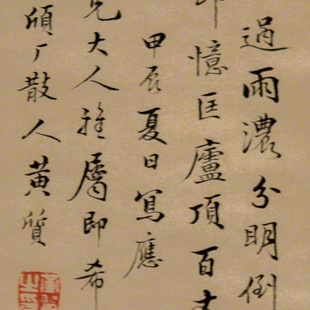 過雨濃分明倒
憶匡廬頂百丈
甲辰夏日寫應
兄大人雅屬即希
厂散人黃質